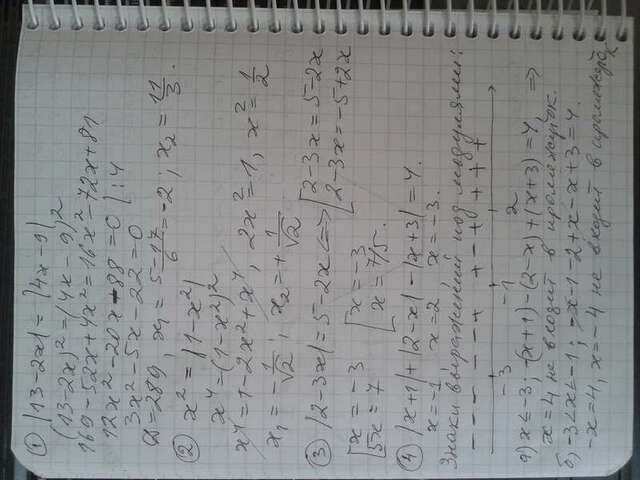 ① |13-2x| = |4x-9|
(13-2x)² = (4x-9)²
169-52x+4x² = 16x²-72x+81
12x²-20x-88=0 |:4
3x²-5x-22=0
D=289, x₁ = (5-17)/6 = -2; x₂ = 11/3.
② x² = |1-x²|
x⁴ = (1-x²)²
x⁴ = 1-2x²+x⁴, 2x²=1, x² = 1/2
x₁ = -1/√2; x₂ = +1/√2
③ |2-3x| = 5-2x <=> [2-3x=5-2x
[2-3x=-5+2x
[x=-3 [x=-3
[5x=7 [x=7/5.
④ |x+1|+|2-x|-|x+3|=4.
x=-1 x=2 x=-3.
Знаки выражений под модулями:
- - - - - + + - + + + +
-3 -1 2
а) x≤-3; -(x+1)-(2-x)+(x+3)=4, =>
x=4 не входит в промежуток.
б) -3<x≤-1; -x-1-2+x-x+3=4.
-x=4, x=-4 не входит в промежуток